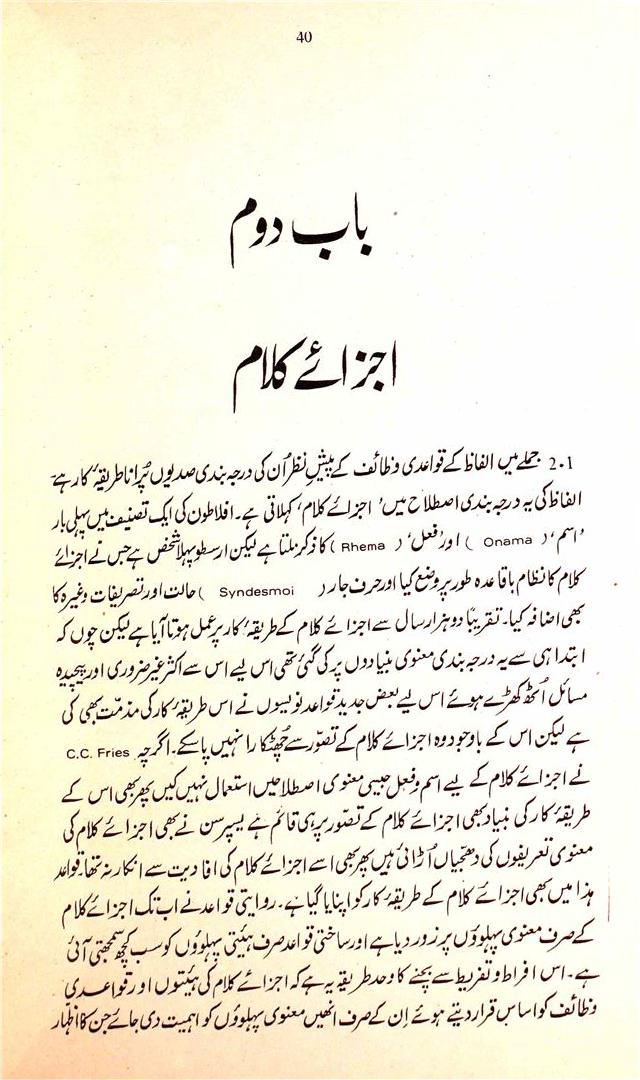 40
باب دوم
اجزائے کلام
2.1 جملے میں الفاظ کے قواعدی وظائف کے پیشِ نظر اُن کی درجہ بندی صدیوں پُرانا طریقۂ کار ہے۔
الفاظ کی یہ درجہ بندی اصطلاح میں 'اجزائے کلام' کہلاتی ہے۔ افلاطون کی ایک تصنیف میں پہلی بار
'اسم' ( Onama ) اور 'فعل' ( Rhema ) کا ذکر ملتا ہے لیکن ارسطو پہلا شخص ہے جس نے اجزائے
کلام کا نظام باقاعدہ طور پر وضع کیا اور حرف جار ( Syndesmoi ) حالت اور تصریفات وغیرہ کا
بھی اضافہ کیا۔ تقریباً دو ہزار سال سے اجزائے کلام کے طریقۂ کار پر عمل ہوتا آیا ہے لیکن چوں کہ
ابتدا ہی سے یہ درجہ بندی معنوی بنیادوں پر کی گئی تھی اس لیے اس سے اکثر غیر ضروری اور پیچیدہ
مسائل اُٹھ کھڑے ہوئے اس لیے بعض جدید قواعد نویسوں نے اس طریقۂ کار کی مذمّت بھی کی
ہے لیکن اس کے باوجود وہ اجزائے کلام کے تصوّر سے چُھٹکارا نہیں پاسکے۔ اگرچہ C.C. Fries
نے اجزائے کلام کے لیے اسم و فعل جیسی معنوی اصطلاحیں استعمال نہیں کیں پھر بھی اس کے
طریقۂ کار کی بنیاد بھی اجزائے کلام کے تصور پر ہی قائم ہے یسپرسن نے بھی اجزائے کلام کی
معنوی تعریفوں کی دھجیاں اُڑائی ہیں پھر بھی اسے اجزائے کلام کی افادیت سے انکار نہ تھا۔ قواعد
ہذا میں بھی اجزائے کلام کے طریقۂ کار کو اپنایا گیا ہے۔ روایتی قواعد نے اب تک اجزائے کلام
کے صرف معنوی پہلوؤں پر زور دیا ہے اور ساختی قواعد صرف ہیئتی پہلوؤں کو سب کچھ سمجھتی آئی
ہے۔ اس افراط و تفریط سے بچنے کا واحد طریقہ یہ ہے کہ اجزائے کلام کی ہیئتوں اور قواعدی
وظائف کو اساس قرار دیتے ہوئے اِن کے صرف انھیں معنوی پہلوؤں کو اہمیت دی جائے جن کا اظہار